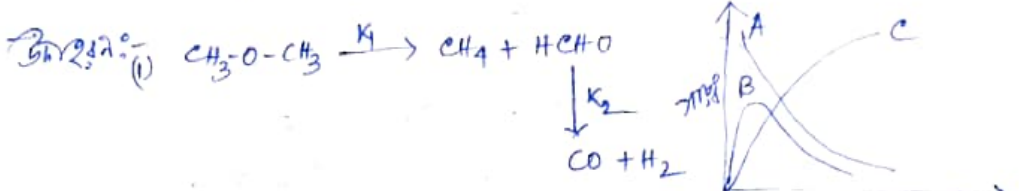 উদাহরণঃ- (1) CH₃-O-CH₃ —K₁→ CH₄ + HCHO
↓ K₂
CO + H₂
A
B
C